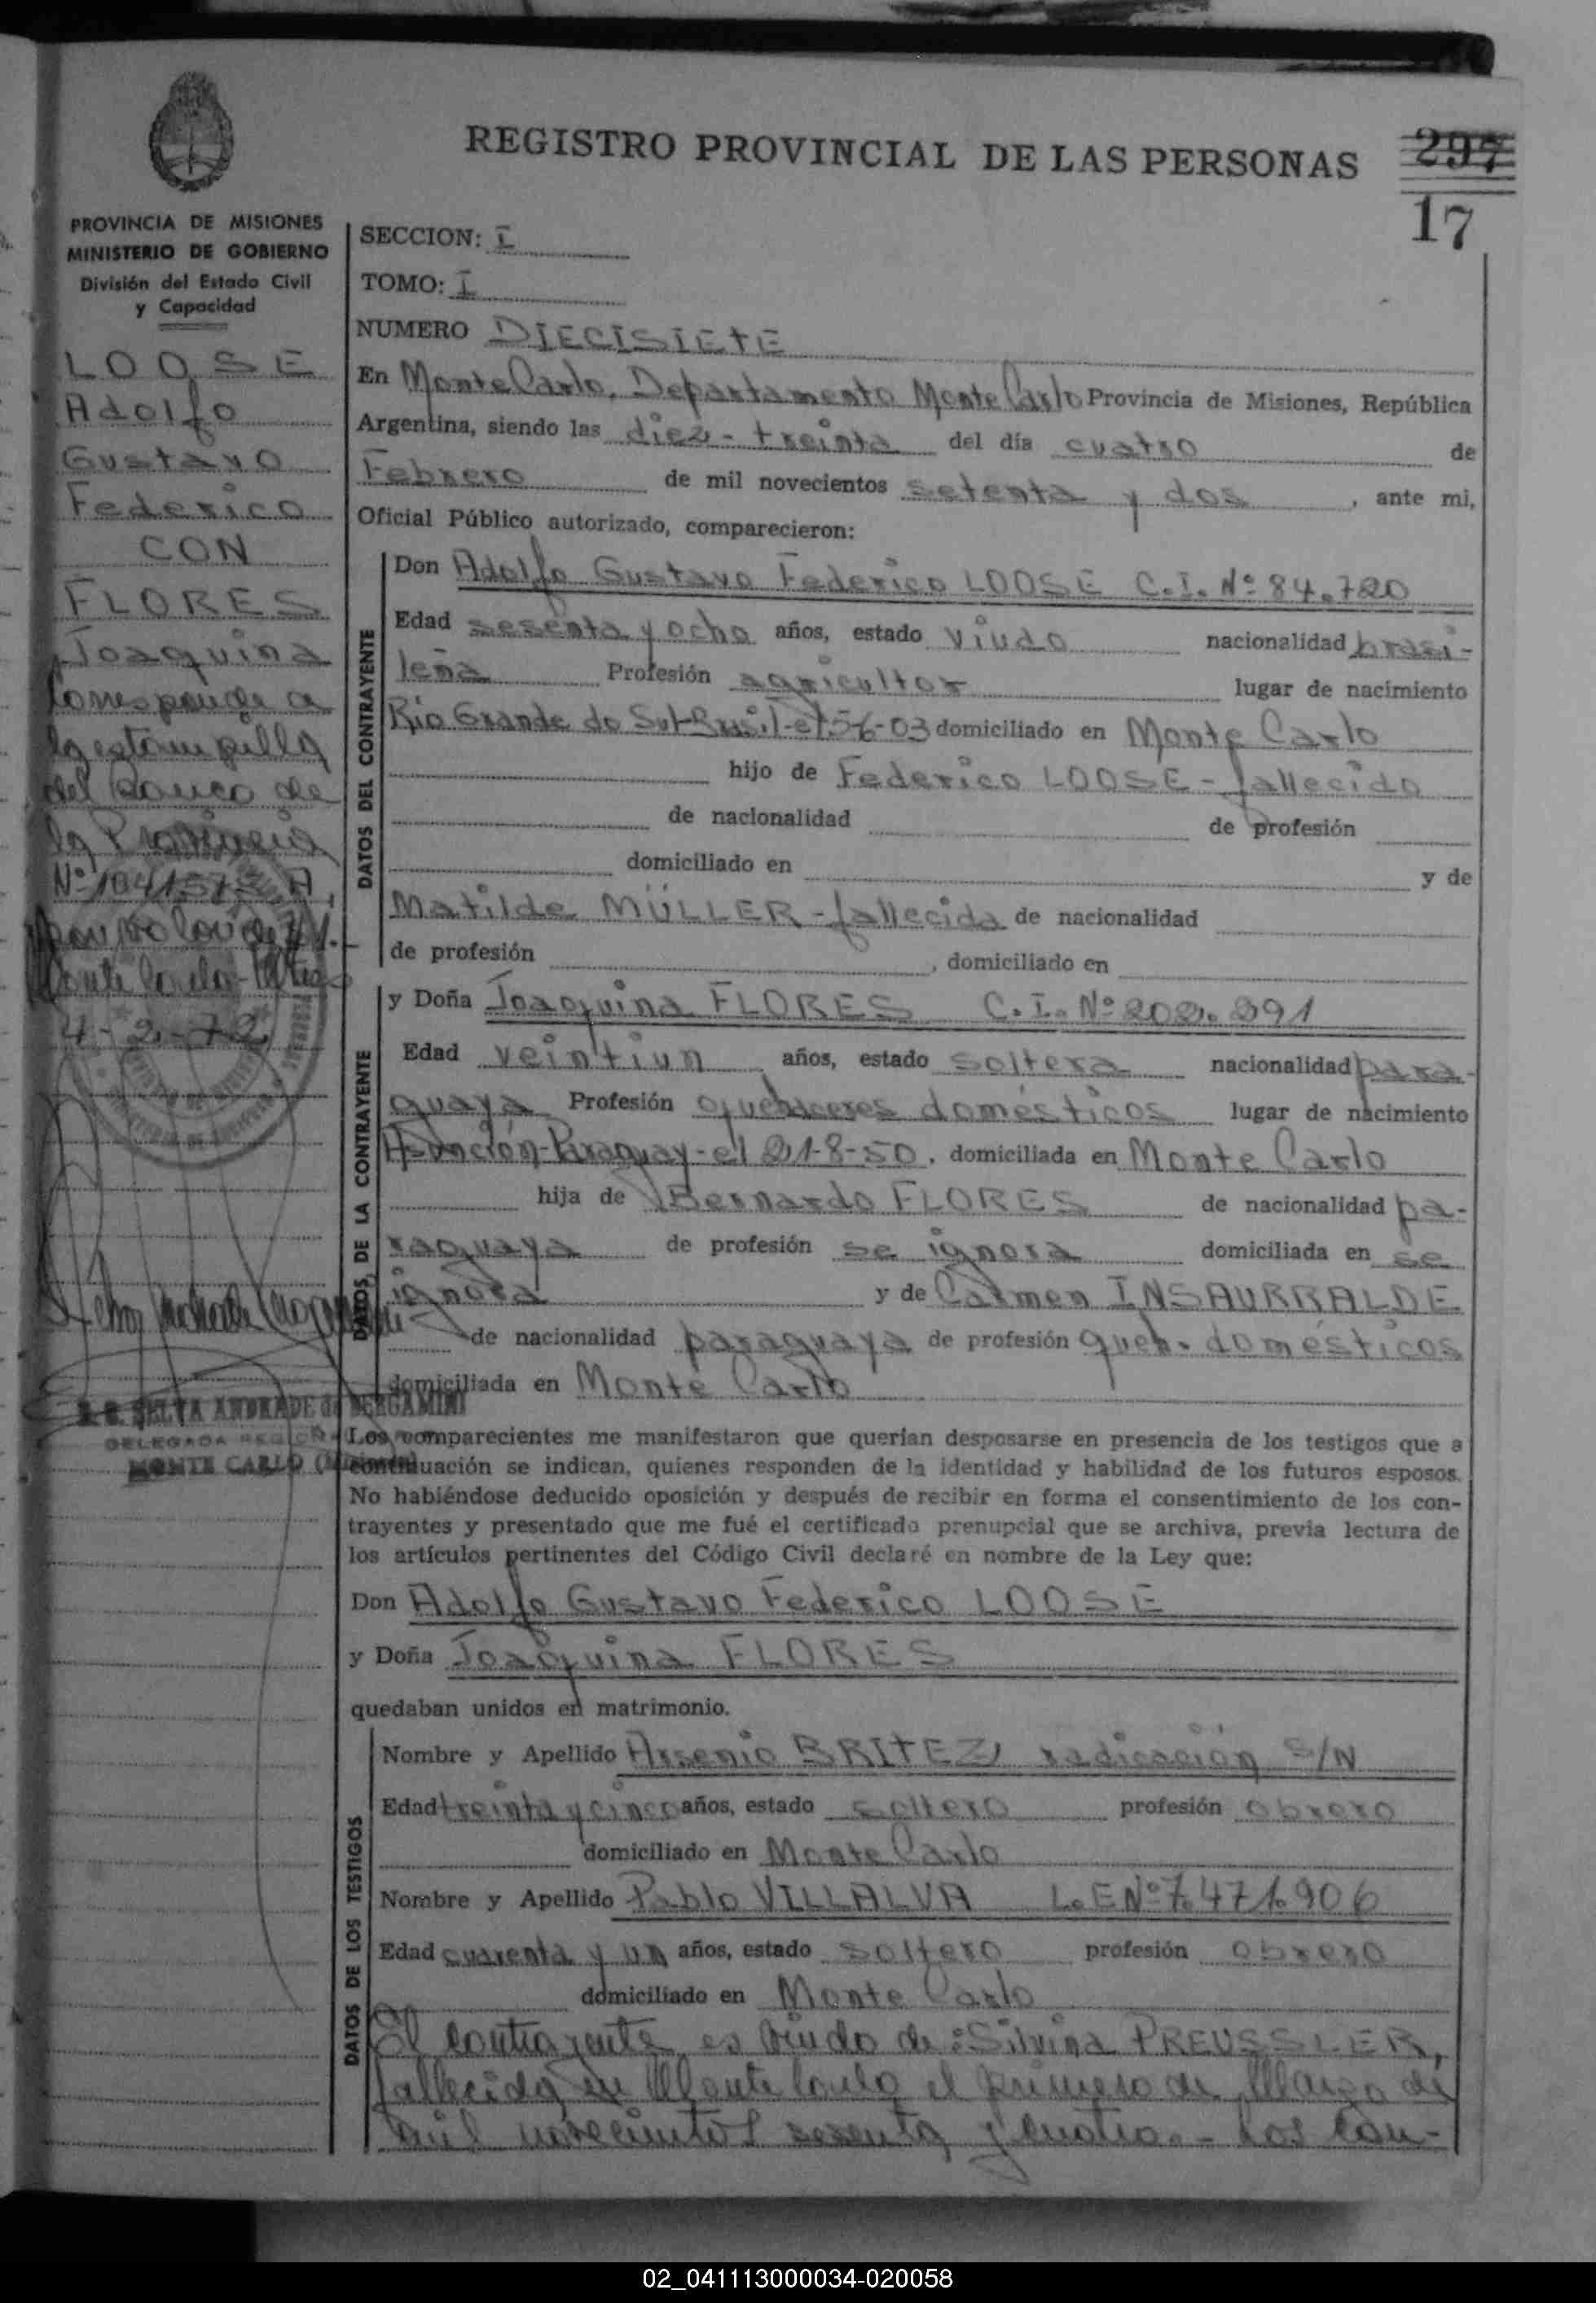 REGISTRO PROVINCIAL DE LAS PERSONAS
297
17
PROVINCIA DE MISIONES
MINISTERIO DE GOBIERNO
División del Estado Civil
y Capacidad
LOOSE
Adolfo
Gustavo
Federico
CON
FLORES
Joaquina
Corresponde a
la estampilla
del Banco de
la Provincia
Monte Carlo
4-2-72
S. E. SELVA ANDRADE de BERGAMINI
DELEGADA
MONTE CARLO
SECCION: I
TOMO: I
NUMERO DIECISIETE
En Monte Carlo, Departamento Monte Carlo Provincia de Misiones, República
Argentina, siendo las diez - treinta del día cuatro de
Febrero de mil novecientos setenta y dos, ante mi,
Oficial Público autorizado, comparecieron:
DATOS DEL CONTRAYENTE
Don Adolfo Gustavo Federico LOOSE C.I. Nº 84.720
Edad sesenta y ocho años, estado viudo nacionalidad brasi-
leña Profesión agricultor lugar de nacimiento
Río Grande do Sul-Brasil-el domiciliado en Monte Carlo
hijo de Federico LOOSE - fallecido
de nacionalidad de profesión
domiciliado en y de
Matilde MÜLLER - fallecida de nacionalidad
de profesión , domiciliado en
DATOS DE LA CONTRAYENTE
y Doña Joaquina FLORES C.I. Nº 202.291
Edad veintiun años, estado soltera nacionalidad para-
guaya Profesión quehaceres domésticos lugar de nacimiento
Asunción-Paraguay-el 21-8-50, domiciliada en Monte Carlo
hija de Bernardo FLORES de nacionalidad pa-
raguaya de profesión se ignora domiciliada en se
ignora y de Carmen INSAURRALDE
de nacionalidad paraguaya de profesión queh. domésticos
domiciliada en Monte Carlo
Los comparecientes me manifestaron que querían desposarse en presencia de los testigos que a
continuación se indican, quienes responden de la identidad y habilidad de los futuros esposos.
No habiéndose deducido oposición y después de recibir en forma el consentimiento de los con-
trayentes y presentado que me fué el certificado prenupcial que se archiva, previa lectura de
los artículos pertinentes del Código Civil declaré en nombre de la Ley que:
Don Adolfo Gustavo Federico LOOSE
y Doña Joaquina FLORES
quedaban unidos en matrimonio.
DATOS DE LOS TESTIGOS
Nombre y Apellido Arsenio BRITEZ, radicación S/N
Edad treinta y cinco años, estado soltero profesión obrero
domiciliado en Monte Carlo
Nombre y Apellido Pablo VILLALVA L.E Nº 7.471.906
Edad cuarenta y un años, estado soltero profesión obrero
domiciliado en Monte Carlo
El contrayente es viudo de: Silvina PREUSSLER,
fallecida en Monte Carlo el primero de Marzo de
mil novecientos sesenta y cuatro.- Los con-
02_041113000034-020058